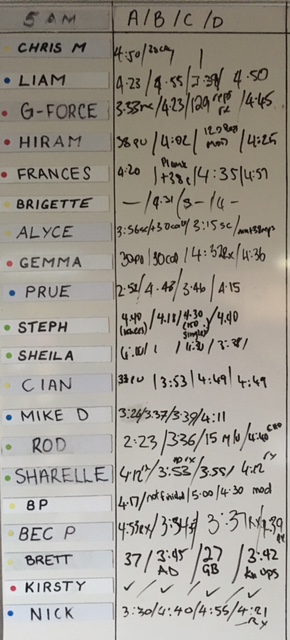 5 AM A/B/C/D
CHRIS M 4:50/20cal |
LIAM 4:23/4:55/3:39/4:50
G-FORCE 3:53rx/4:23/129 reps rx/4:45
HIRAM 38 PU/4:02/120 reps mod/4:25
FRANCES 4:20 Plank +38s/4:35/4:57
BRIGETTE —/4:31/3-/4-
ALYCE 3:56sc/+30cal/3:15sc/
GEMMA 30PU/30cal/4:32sc/4:36
PRUE 2:52/4:48/3:46/4:15
STEPH 4:49/4:18/4:30 (150 singles)/4:40
SHEILA 4:00/ / 4:30/3:38/
CIAN 33PU/3:53/4:49/4:49
MIKE D 3:24/3:37/3:39/4:11
ROD 2:23/336/15 m/u/4:40
SHARELLE 4:12/3:53 no rx/3:55/4:12 rx
BP 4:17/not finished/5:00/4:30 mod
BEC P 4:55rx/3:54s/3:37rx/4:39 rx
BRETT 37/3:45 AD/27 GB/3:42 Ku ups
KIRSTY ✓/✓/✓/✓
NICK 3:30/4:40/4:55/4:21 rx